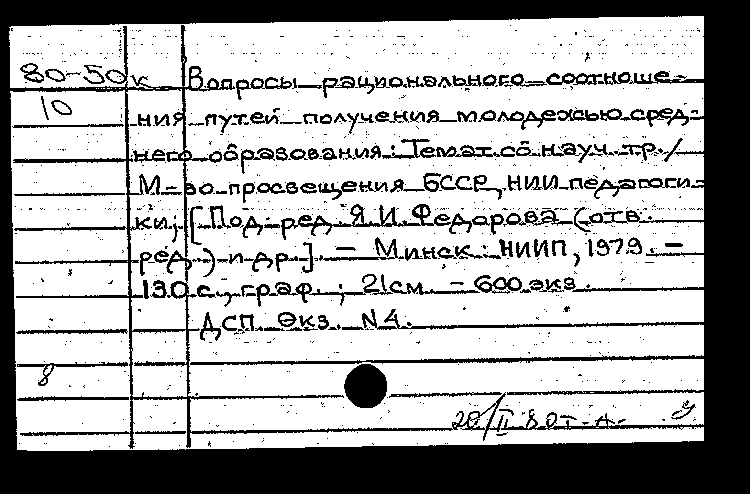 80-50 к Вопросы рационального соотноше-
10 ния путей получения молодежью сред-
него образования: Темат. сб. науч. тр./
М-во просвещения БССР, НИИ педагоги-
ки; [Под ред. Я.И. Федорова (отв.
ред.) и др.] — Минск: НИИП, 1979. —
130 с., граф.; 21 см. — 600 экз.
ДСП. Экз. N 4.
8
20/II 80г.